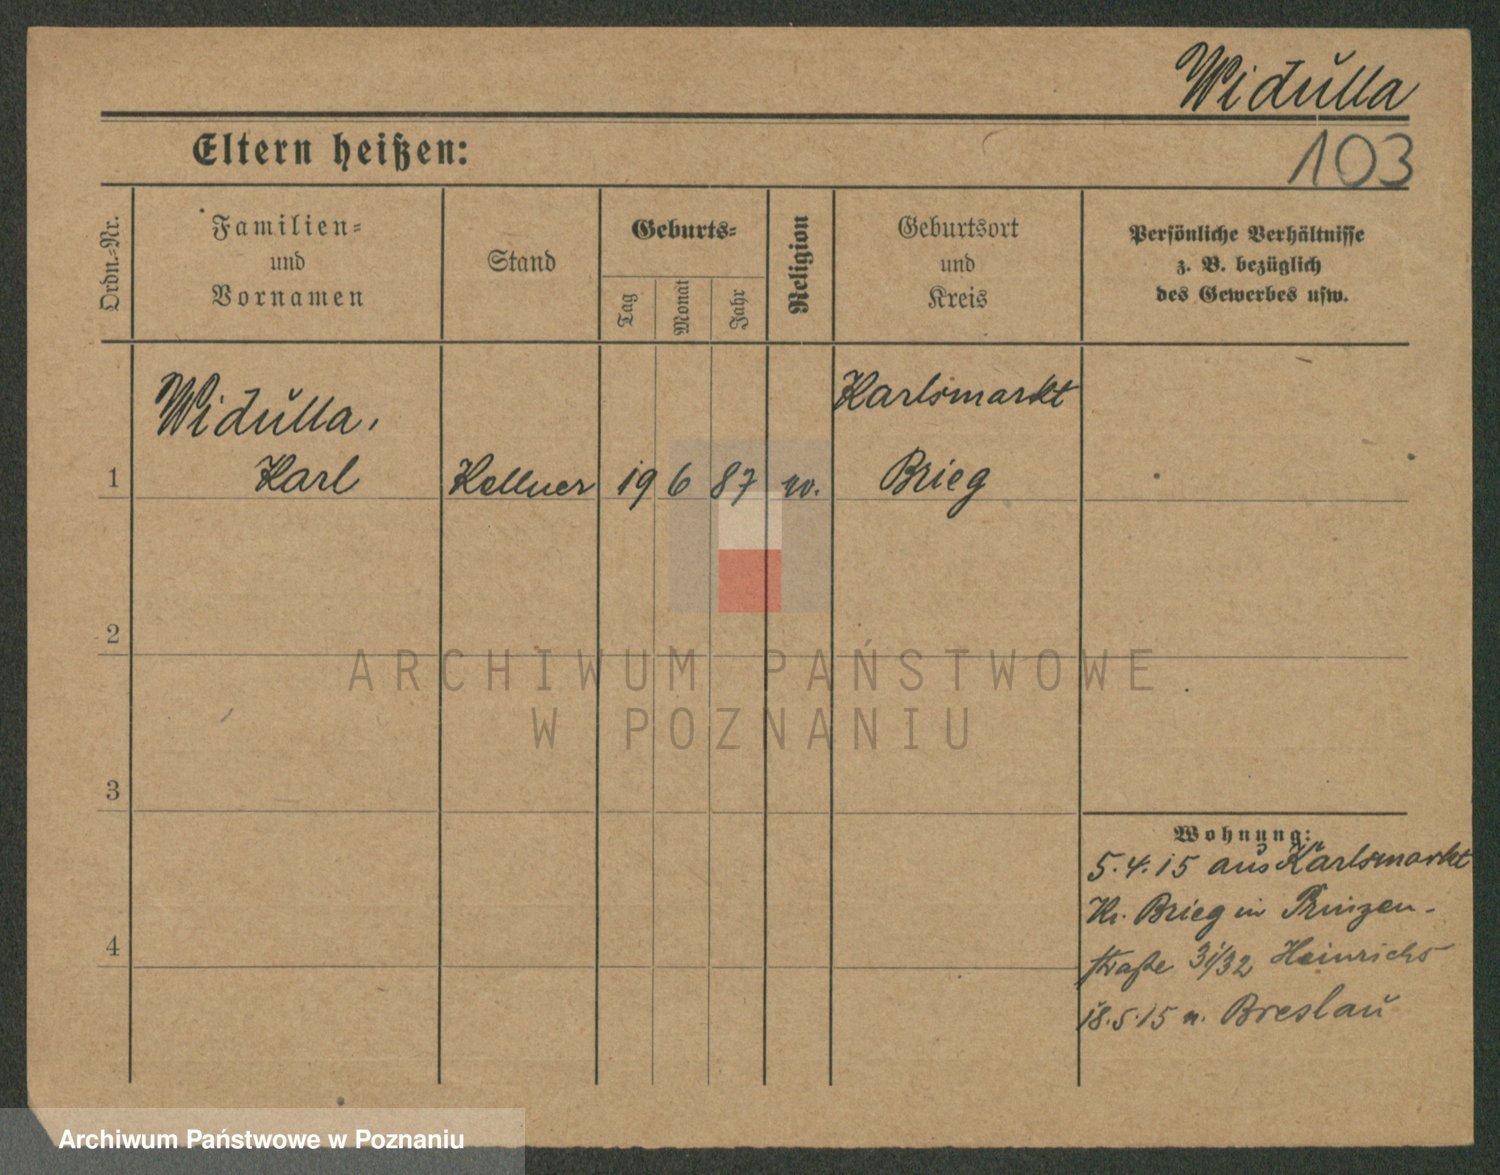 Widulla
Eltern heißen:
103
Ordn.-Nr.
Familien-
und
Vornamen
Stand
Geburts-
Tag
Monat
Jahr
Religion
Geburtsort
und
Kreis
Persönliche Verhältnisse
z. B. bezüglich
des Gewerbes usw.
Widulla,
Karlsmarkt
1 Karl Kellner 19 6 87 Brieg
2
3
4
Wohnung:
5.4.15 aus Karlsmarkt
Kr. Brieg in Prinzen-
straße 31/32 Heinrichs
18.5.15 n. Breslau
ARCHIWUM PAŃSTWOWE
W POZNANIU
Archiwum Państwowe w Poznaniu